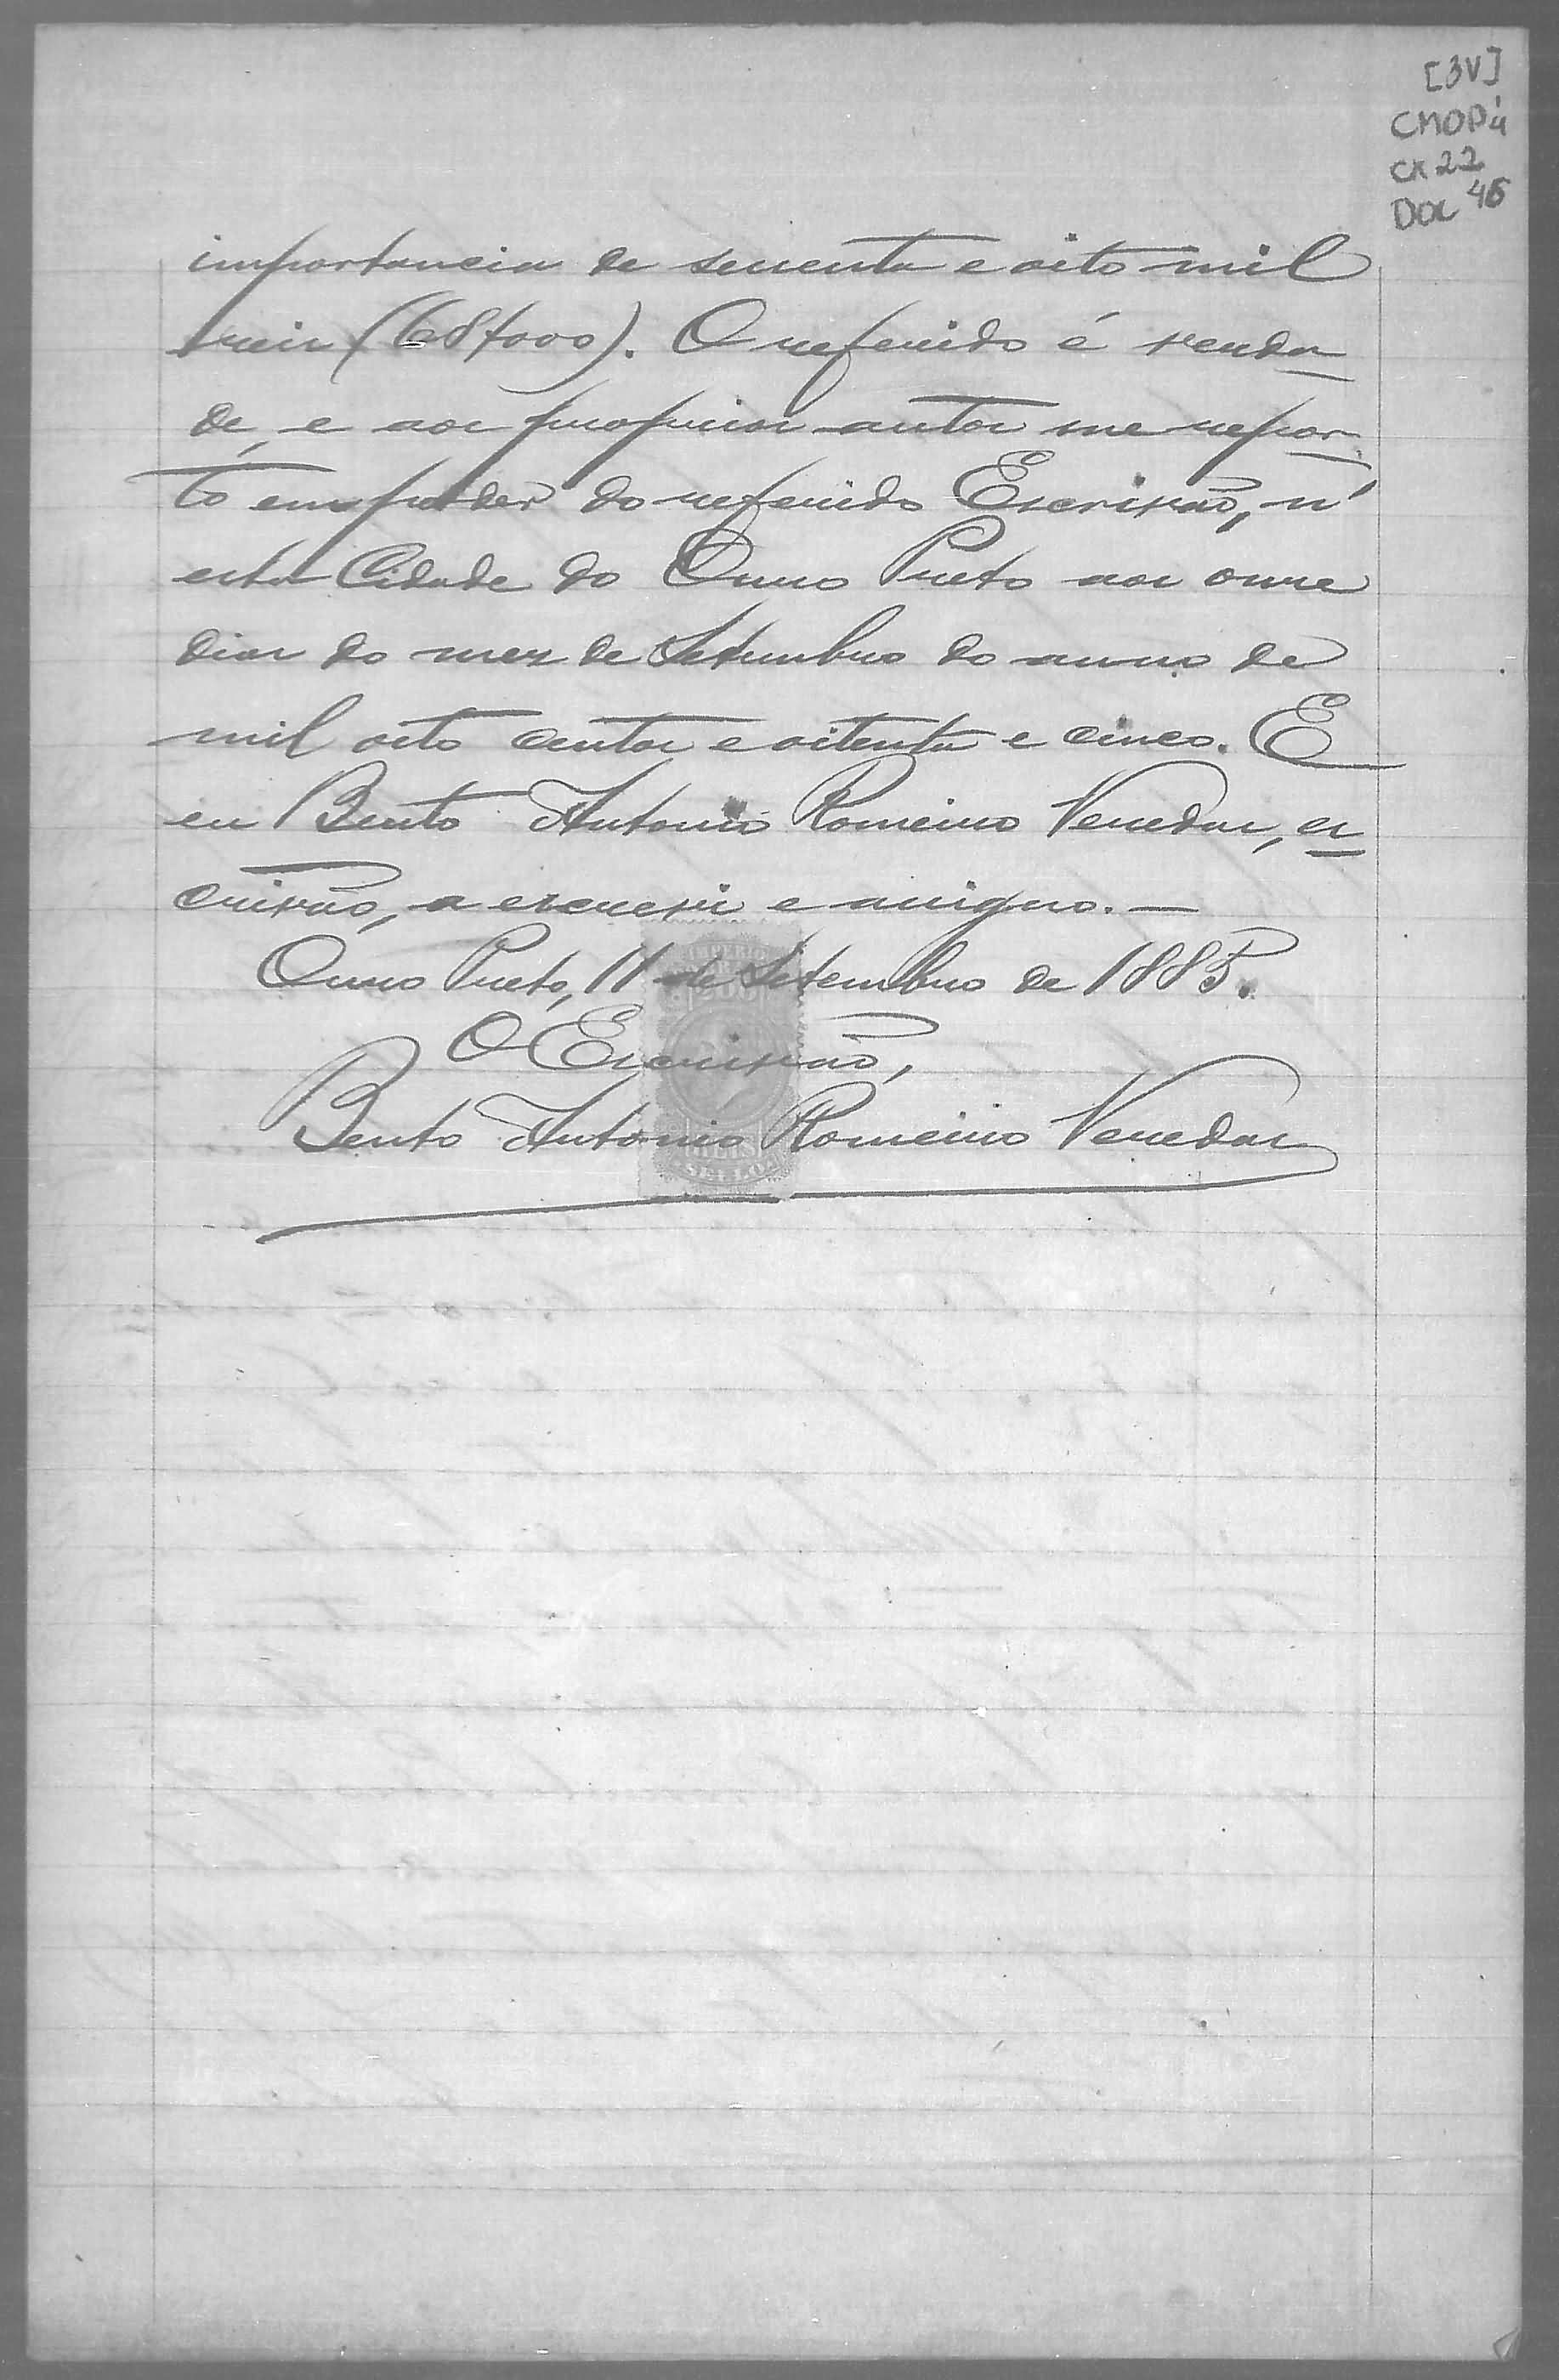 [3V]
CMOP
CX 22
DOC 45
importancia de sessenta e oito mil
reis (68$000). O referido é verda
de, e aos proprios autos me repor
to em poder do referido Escrivão, n'
esta Cidade do Ouro Preto aos onze
dias do mez de Setembro do anno de
mil oito centos e oitenta e cinco. E
eu Bento Antonio Romeiro Veredas, es
crivão, a escrevi e assigno. —
Ouro Preto, 11 de Setembro de 1885.
O Escrivão,
Bento Antonio Romeiro Veredas
IMPERIO
200
REIS
SELLO